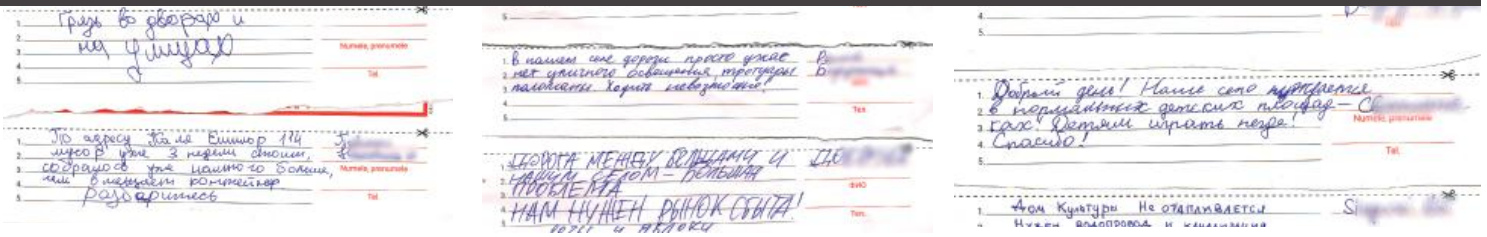 Грязь во дворах и
на улицах
1.
2.
3.
4.
5.
Numele, prenumele
Tel.
1. По адресу Каля Ешилор 114
2. мусор уже 3 недели стоит,
3. собралось уже намного больше,
4. чем вмещает контейнер
5. разбаритесь
Numele, prenumele
Tel.
5.
1. В нашем селе дороги просто ужас
2. нет уличного освещения, тротуары
3. Ходить невозможно!
4.
5.
Тел.
1. ДОРОГА МЕЖДУ БЕЛЬЦАМИ И
2. НАШИМ СЕЛОМ – БОЛЬШАЯ
3. ПРОБЛЕМА
4. НАМ НУЖЕН РЫНОК СБЫТА!
5. И ЯБЛОКИ
ФИО
Тел.
4.
5.
1. Добрый день! Наше село нуждается
2. в нормальных детских площад–
3. ках! Детям играть негде!
4. Спасибо!
5.
Numele, prenumele
Tel.
1. Дом Культуры Не отапливается
2. Нужен водопровод и канализация